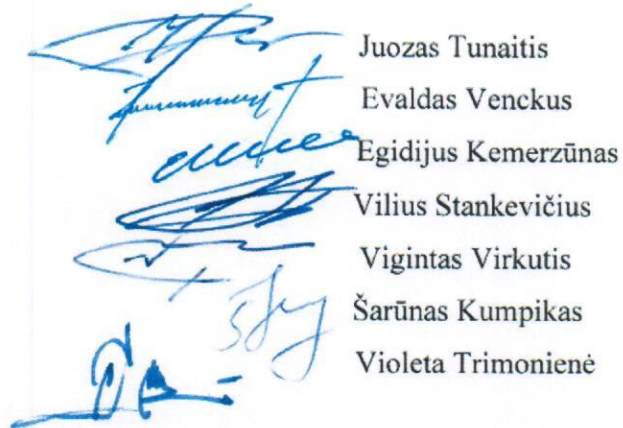 Juozas Tunaitis
Evaldas Venckus
Egidijus Kemerzūnas
Vilius Stankevičius
Vigintas Virkutis
Šarūnas Kumpikas
Violeta Trimonienė